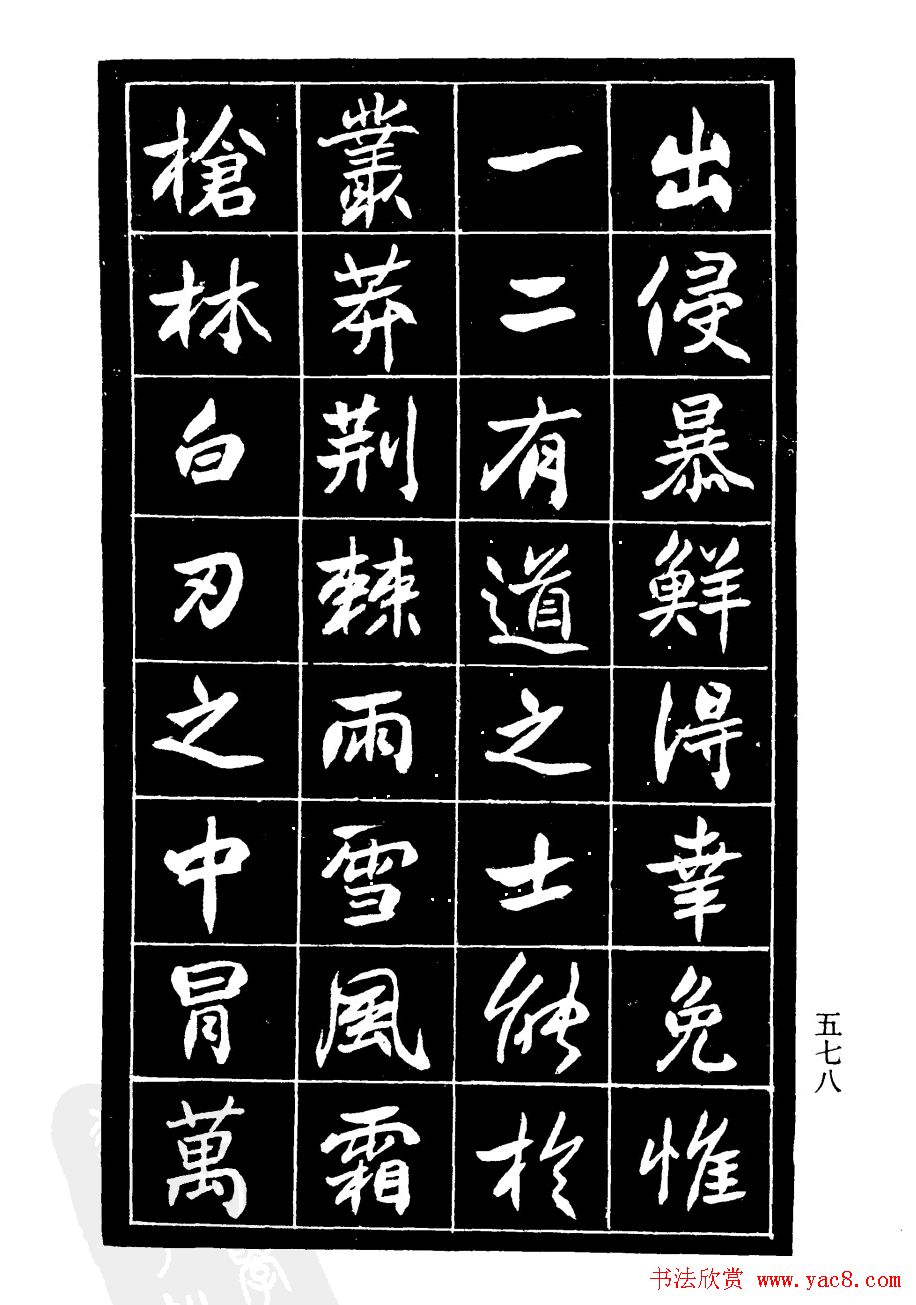 出侵暴鮮得幸免惟
一二有道之士能於
叢莽荊棘雨雪風霜
槍林白刃之中冒萬
五七八
书法欣赏 www.yac8.com